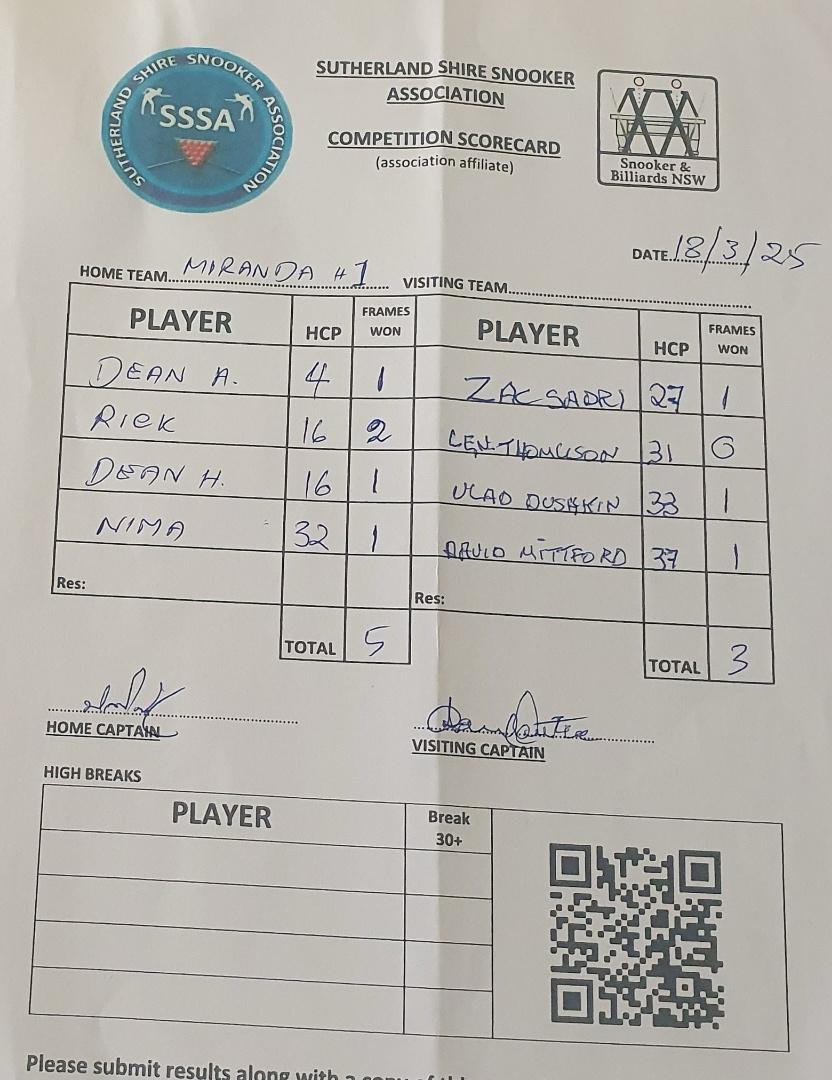 SUTHERLAND SHIRE SNOOKER ASSOCIATION
SSSA
SUTHERLAND SHIRE SNOOKER
ASSOCIATION
COMPETITION SCORECARD
(association affiliate)
Snooker &
Billiards NSW
DATE 18/3/25
HOME TEAM MIRANDA #1 VISITING TEAM
PLAYER HCP FRAMES WON PLAYER HCP FRAMES WON
DEAN A. 4 1 ZAC SADRI 27 1
RICK 16 2 LEN 31 0
DEAN H. 16 1 VLAD DUSHKIN 33 1
NIMA 32 1 DAVID MITTFORD 37 1
Res: Res:
TOTAL 5 TOTAL 3
HOME CAPTAIN VISITING CAPTAIN
HIGH BREAKS
PLAYER Break
30+
Please submit results along with a copy of this